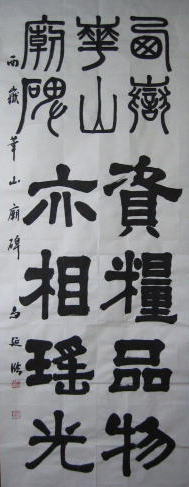 西嶽
華山
廟碑
資糧品物
亦相瑤光
西嶽華山廟碑